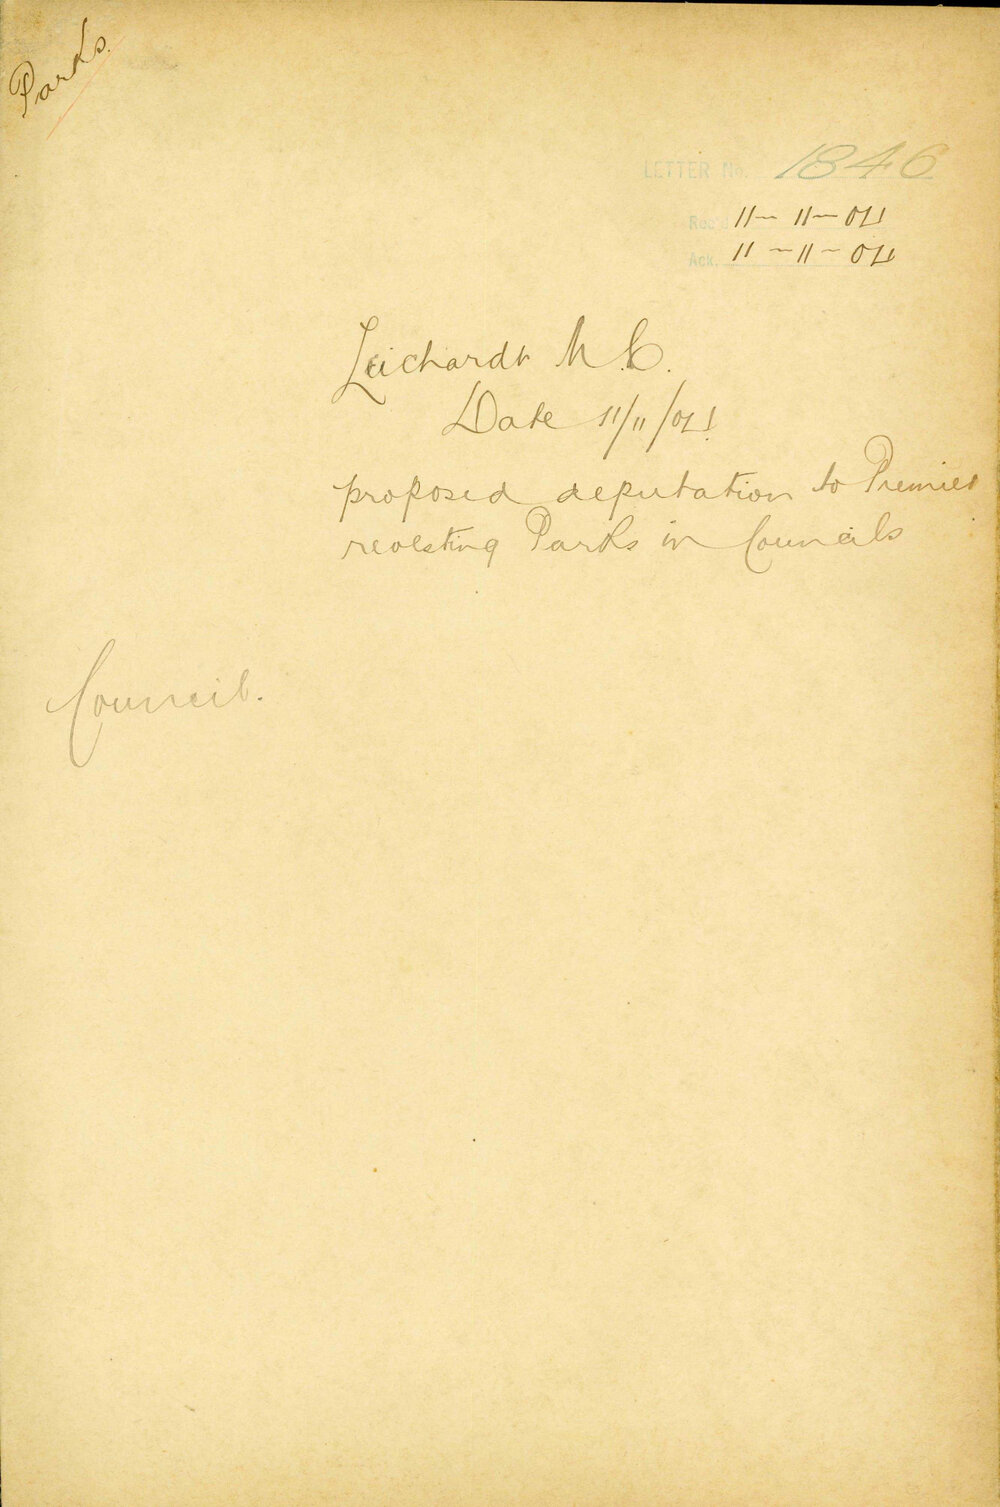 Parks.
LETTER No. 1846
Rec'd 11-11-04
Ack. 11-11-04
Leichardt M.C.
Date 11/11/04
proposed deputation to Premier
revesting Parks in Councils
Council.